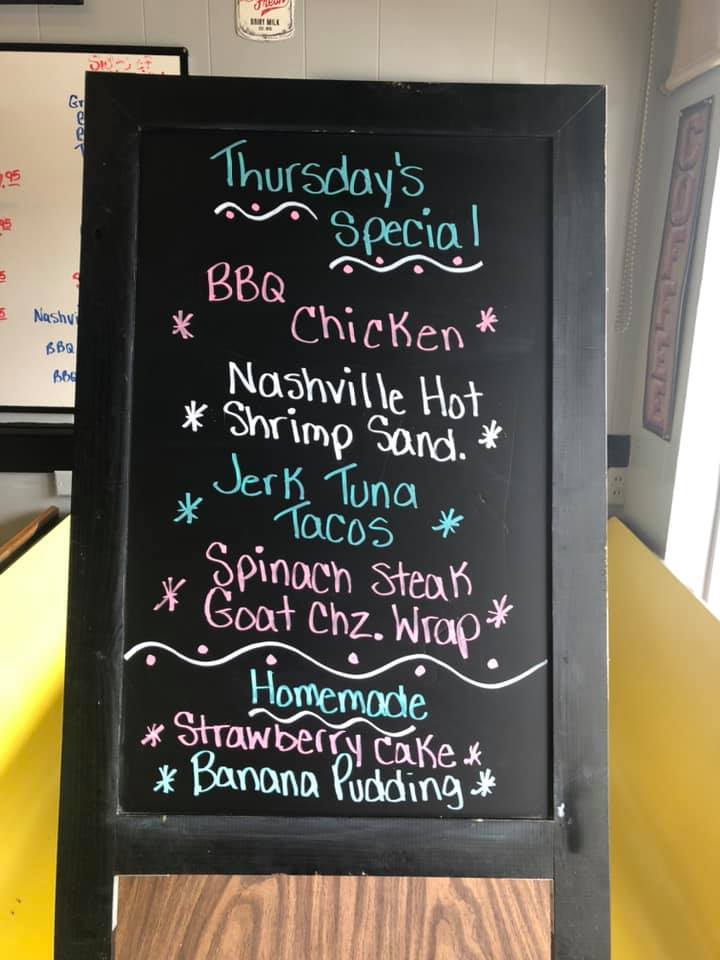 DAIRY MILK
Thursday's
Special
BBQ
Chicken
Nashville Hot
Shrimp Sand.
Jerk Tuna
Tacos
Spinach Steak
Goat Chz. Wrap
Homemade
Strawberry Cake
Banana Pudding
.95
BBQ